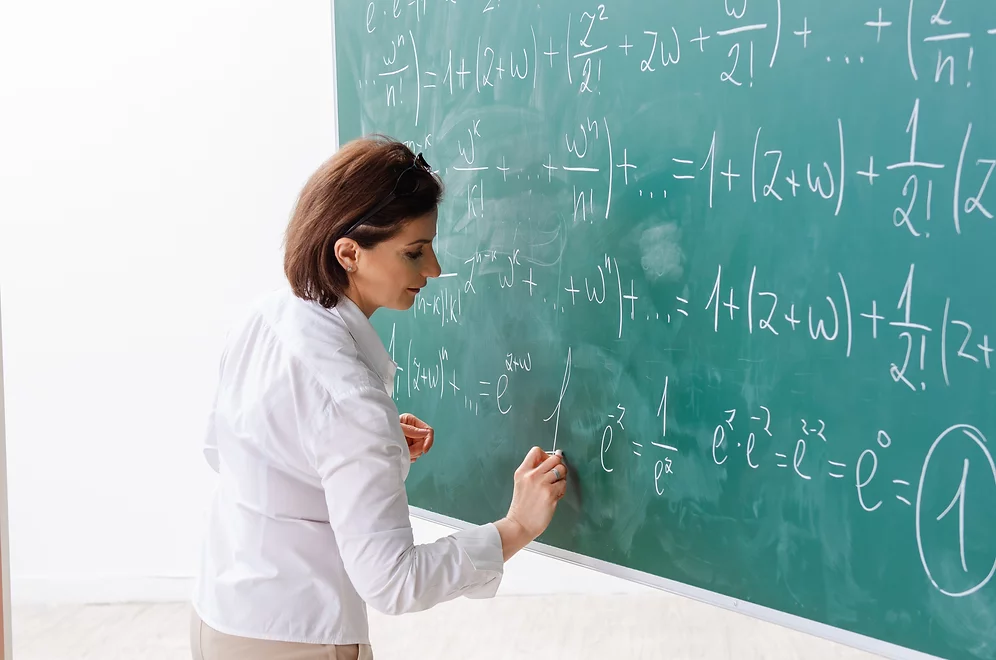 e · e =
w^n/n!) = 1+(z+w) + (z^2/2! + zw + w/2!) + ... + (z/n!
w^k/k! + ... + w^n/n!) + ... = 1+(z+w) + 1/2! (z
z^{n-k} w^k + ... + w^n) + ... = 1+(z+w) + 1/2! (z+
(z+w)^n + ... = e^{z+w}
e^{-z} = 1/e^z e^z · e^{-z} = e^{z-z} = e^0 = 1